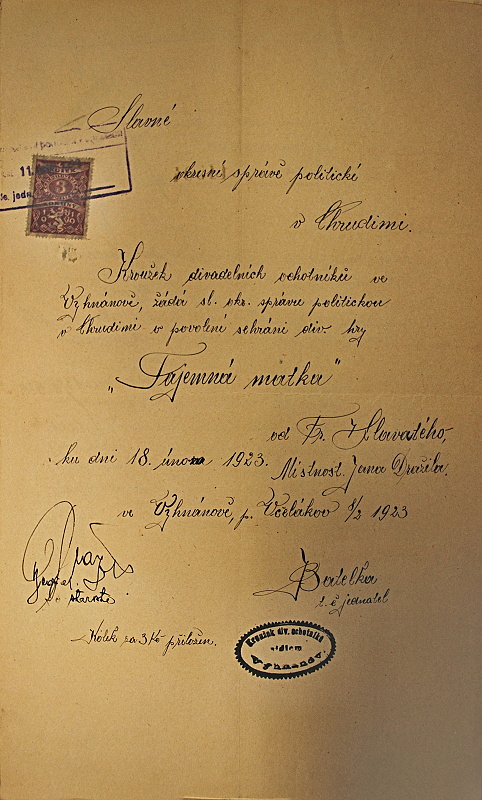 Slavné
11.
jedn.
3
okresní správě politické
v Chrudimi.
Kroužek divadelních ochotníků ve
Vyhnánově, žádá sl. okr. správu politickou
v Chrudimi o povolení sehráni div. hry
„Tajemná matka"
od Fr. Hlavatého,
ku dni 18. února 1923. Místnost. Jana Dražila.
ve Vyhnánově, p. Včelákov 8/2 1923
Batelka
t. č. jednatel
starosta
Kolek za 3 Kč přiložen.
Kroužek div. ochotníků
sídlem
Vyhnánov